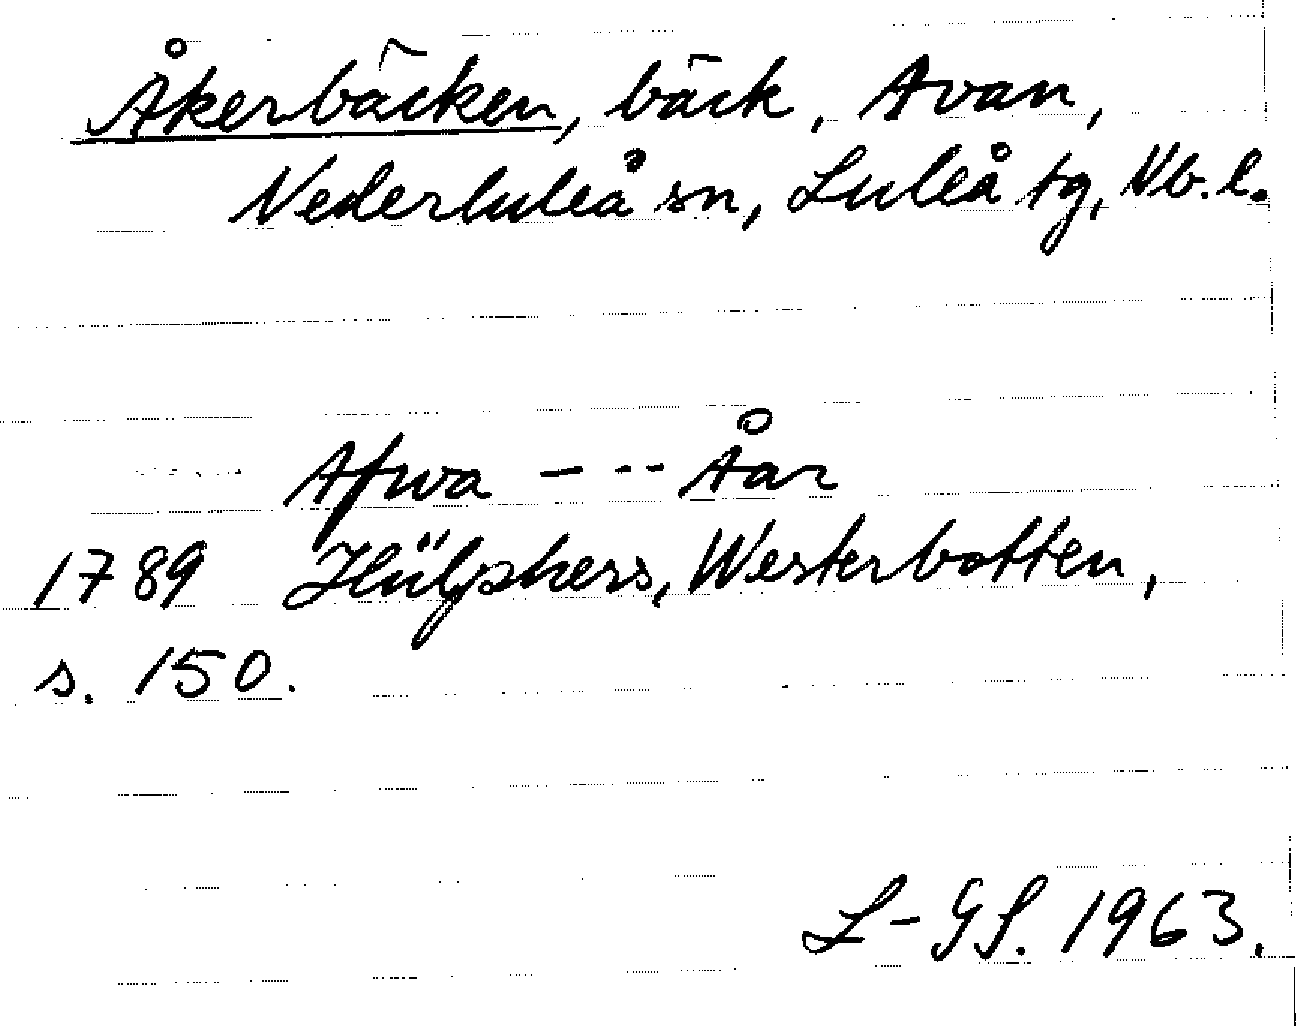 Åkerbäcken, bäck, Avan,
Nederluleå sn, Luleå tg, Nb. l.
Afwa - -- Åar
1789 Hülphers, Westerbotten,
s. 150.
L-GS. 1963.